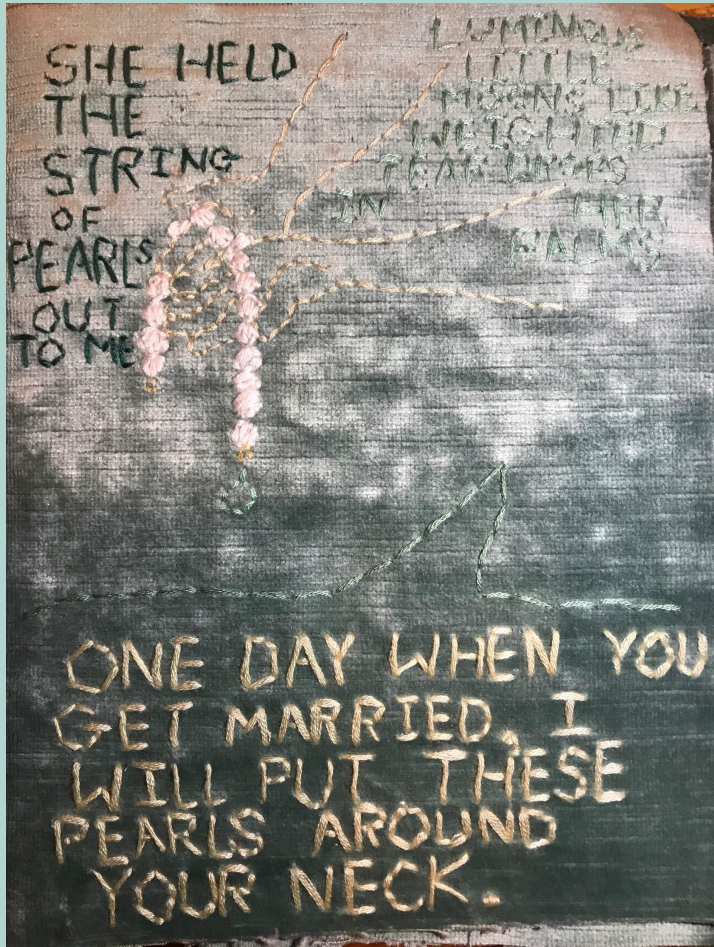 SHE HELD
THE
STRING
OF
PEARLS
OUT
TO ME
LUMINOUS
LITTLE
MOONS LIKE
WEIGHTED
TEAR DROPS
IN HER
PALMS
ONE DAY WHEN YOU
GET MARRIED, I
WILL PUT THESE
PEARLS AROUND
YOUR NECK.